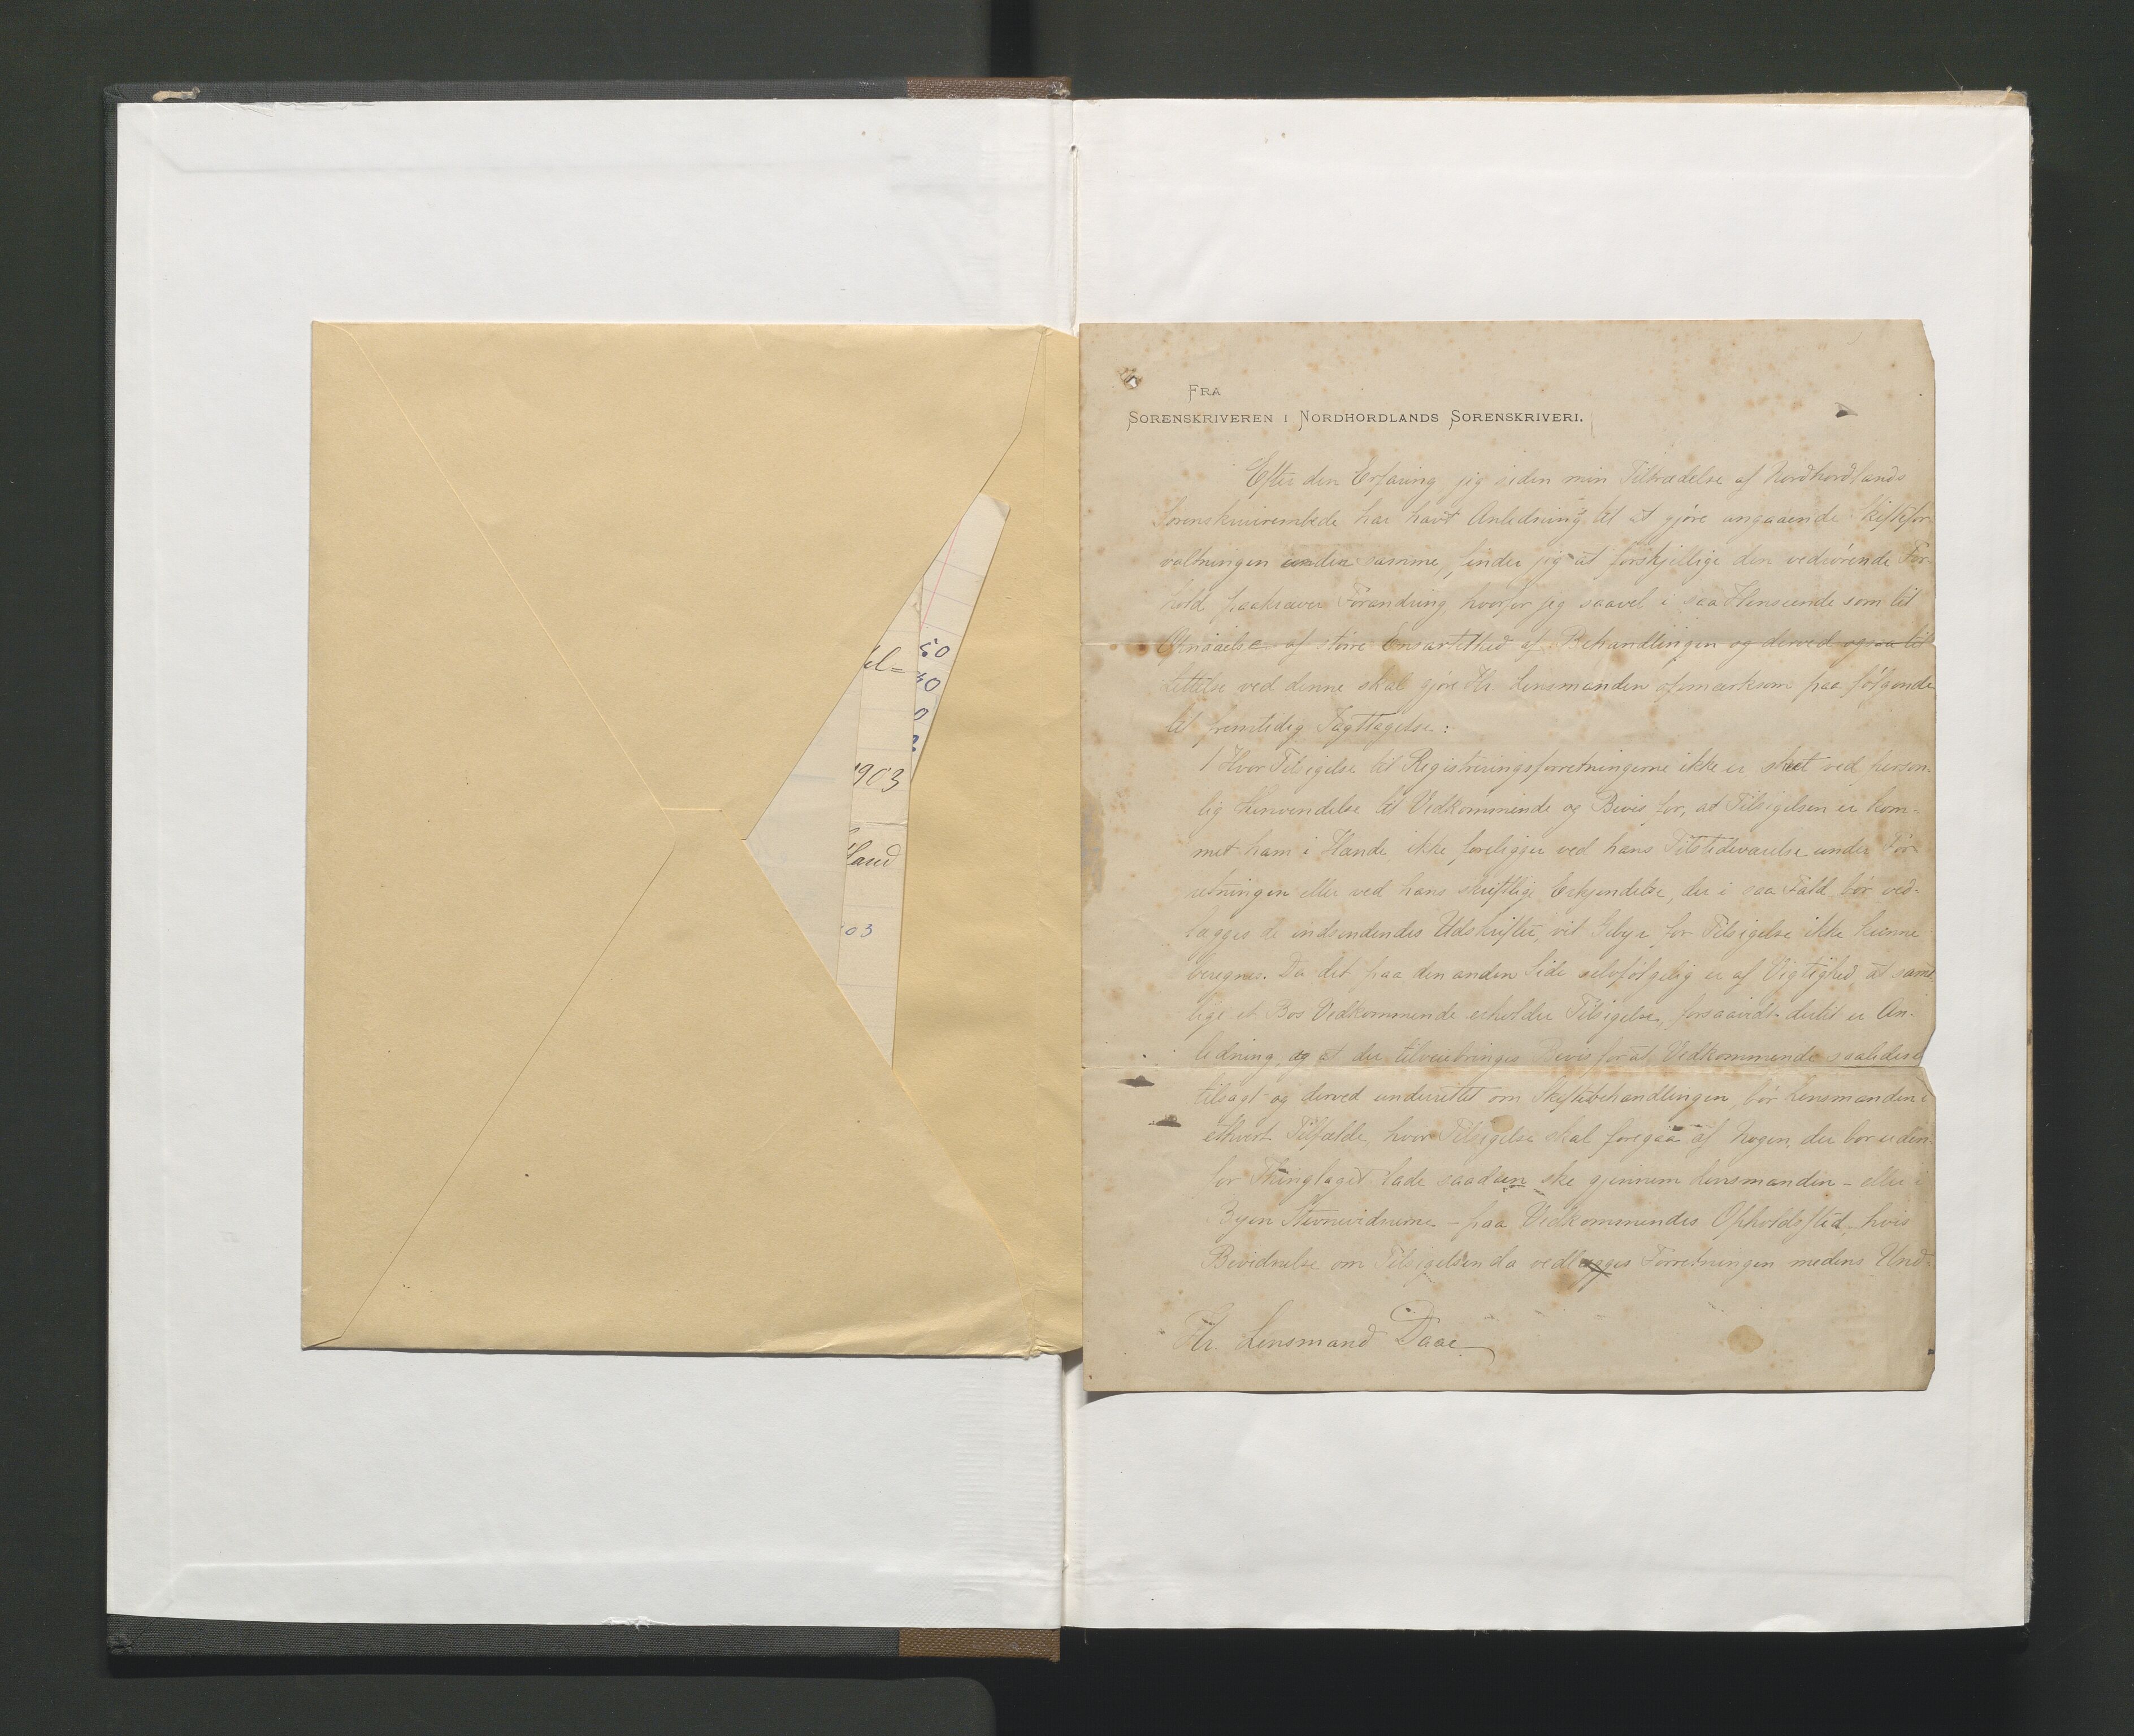 50
el=
40
0
1903
land
03
FRA
SORENSKRIVEREN I NORDHORDLANDS SORENSKRIVERI.
Efter den Erfaring jeg siden min Tiltrædelse af Nordhordlands
Sorenskriverembede har havt Anledning til at gjøre angaaende Skiftefor-
valtningen under samme, finder jeg at forskjellige den vedrørende For-
hold paakræver Forandring, hvorfor jeg saavel i saa Henseende som til
Opnaaelse af større Ensartethed af Behandlingen og derved ogsaa til
Lettelse ved denne skal gjøre Hr Lensmanden opmærksom paa følgende
til fremtidig Iagttagelse:
1 Hvor Tilsigelse til Registreringsforretningerne ikke er skeet ved person-
lig Henvendelse til Vedkommende og Bevis for, at Tilsigelsen er kom-
met ham i Hænde ikke foreligger ved hans Tilstedeværelse under For-
retningen eller ved hans skriftlige Erkjendelse, der i saa Fald bør ved-
lægges de indsendendes Udskrifter, vil Gebyr for Tilsigelse ikke kunne
beregnes. Da det paa den anden Side selvfølgelig er af Vigtighed, at samt-
lige et Bos Vedkommende erholder Tilsigelse, forsaavidt dertil er An-
ledning, og at der tilveiebringes Bevis for at Vedkommende saaledes er
tilsagt og derved underrettet om Skiftebehandlingen, bør Lensmanden i
ethvert Tilfælde, hvor Tilsigelse skal foregaa af Nogen, der bor uden-
for Thinglaget lade saadan ske gjennem Lensmanden – eller i
Byen Stevnevidnerne – paa Vedkommendes Opholdssted, hvis
Bevidnelse om Tilsigelsen da vedlægges Forretningen medens Und-
Hr. Lensmand Daae